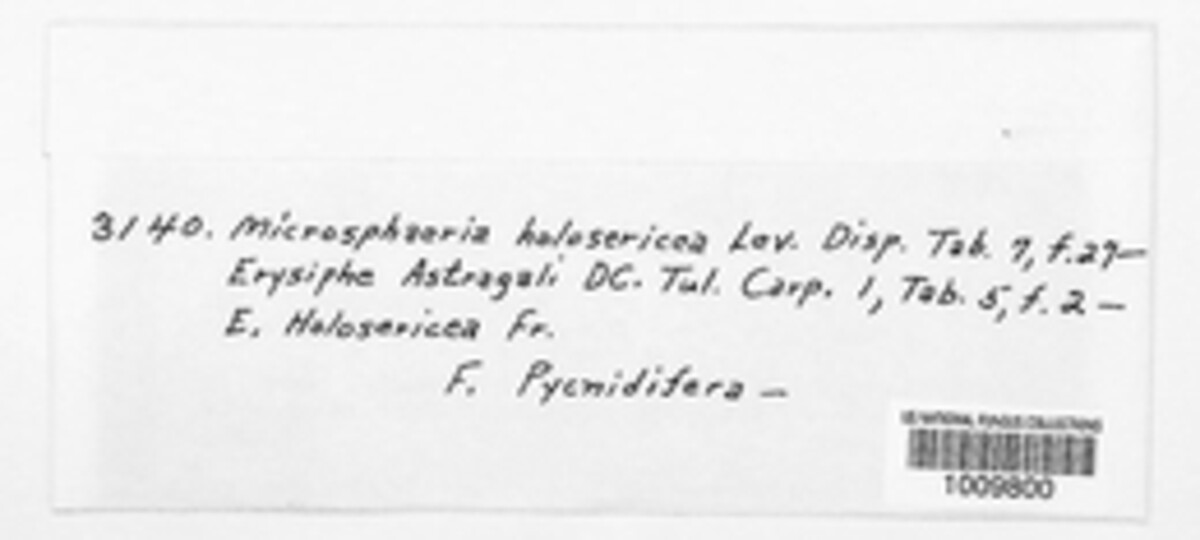 3140. Microsphaeria holosericea Lev. Disp. Tab. 7, f.27—
Erysiphe Astragali DC. Tul. Carp. 1, Tab. 5, f. 2 —
E. Holosericea Fr.
F. Pycnidifera —
US NATIONAL FUNGUS COLLECTIONS
1009800